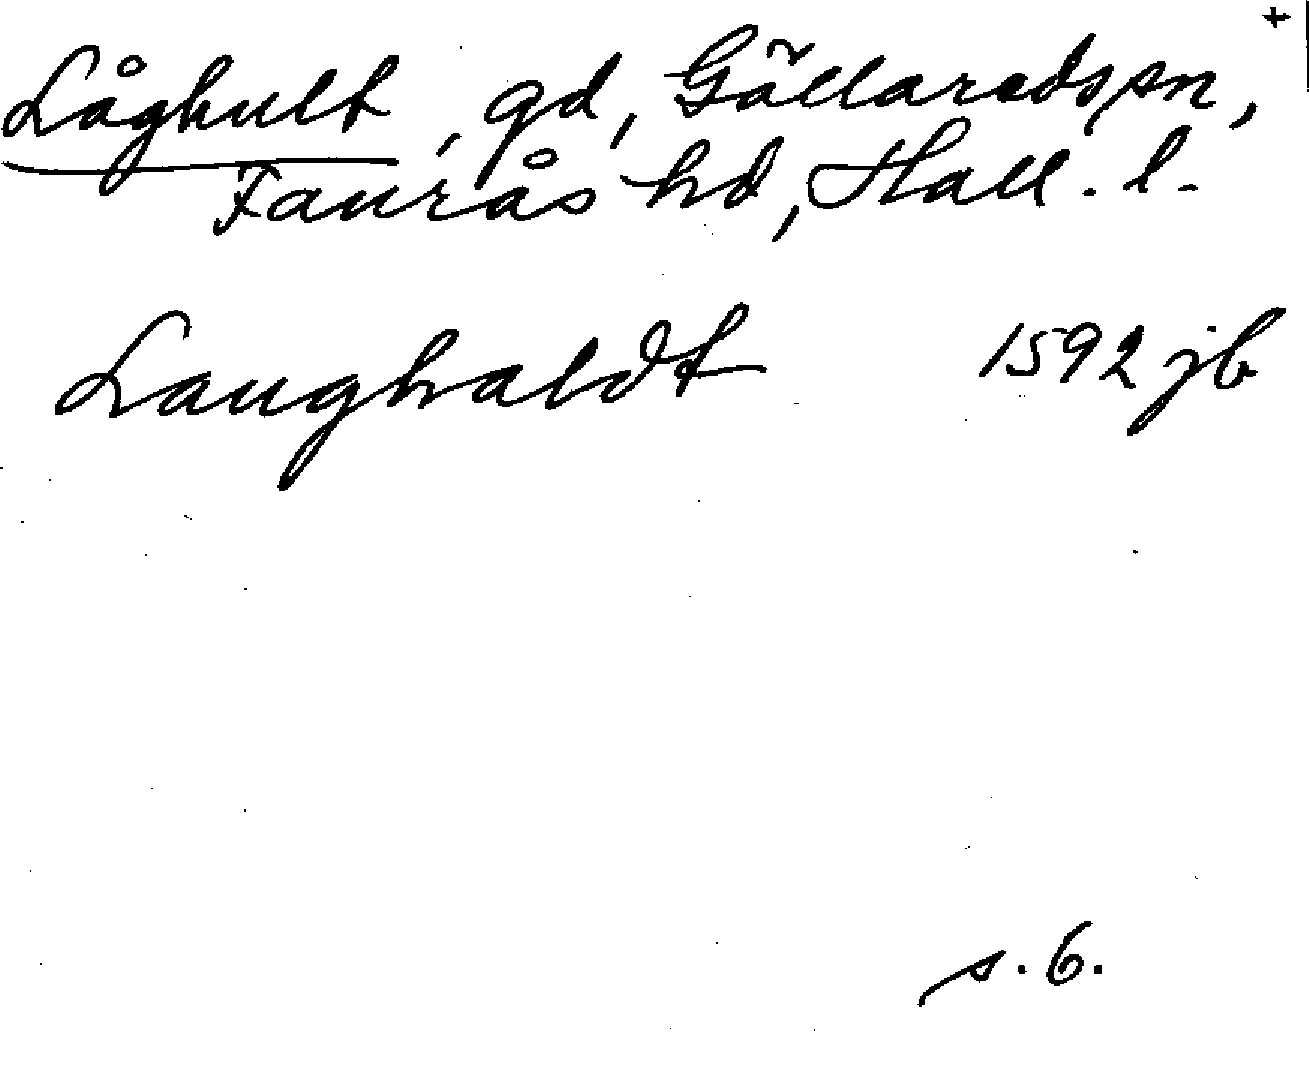 +
Låghult, gd, Gällareds sn,
Faurås hd, Hall. l.
Laughaldt 1592 jb
s. 6.